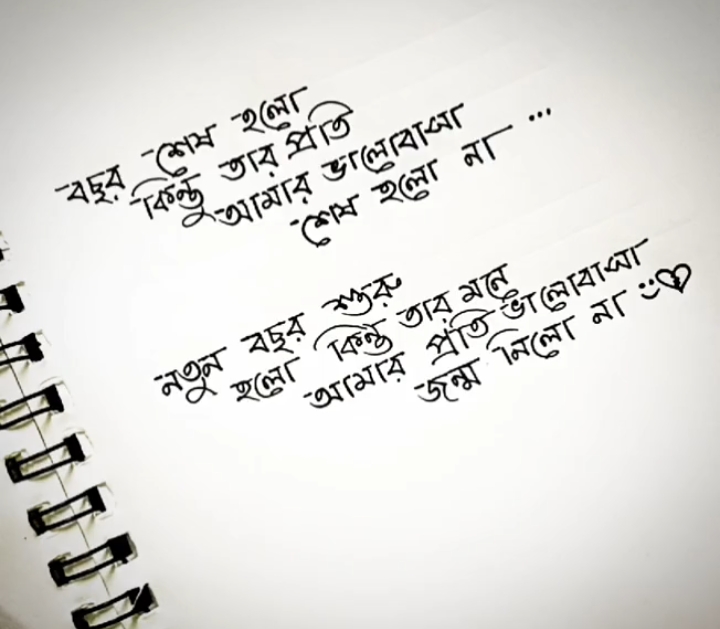 বছর শেষ হলো
কিন্তু তার প্রতি
আমার ভালোবাসা
শেষ হলো না ...
নতুন বছর শুরু
হলো কিন্তু তার মনে
আমার প্রতি ভালোবাসা
জন্ম নিলো না